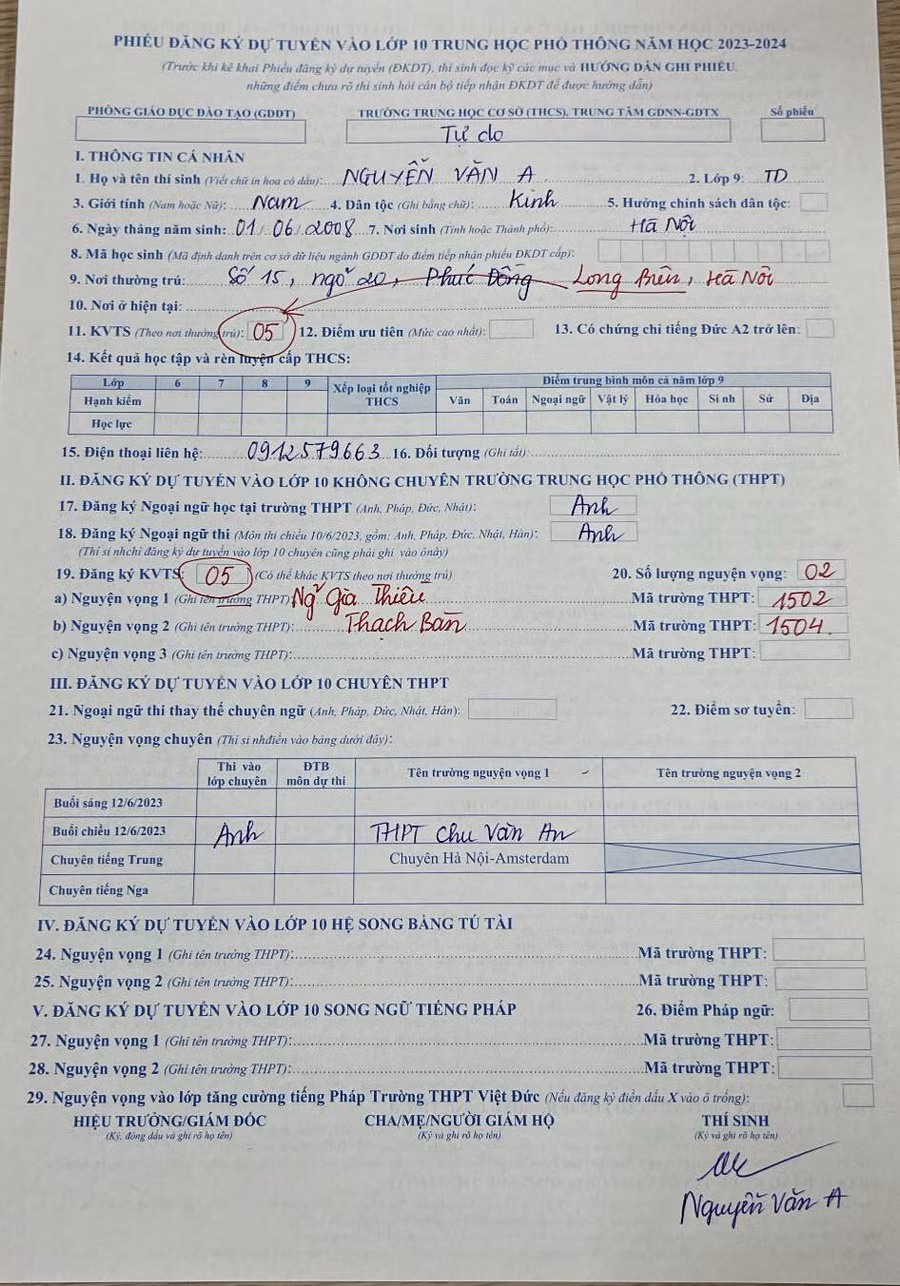 PHIẾU ĐĂNG KÝ DỰ TUYỂN VÀO LỚP 10 TRUNG HỌC PHỔ THÔNG NĂM HỌC 2023-2024
(Trước khi kê khai Phiếu đăng ký dự tuyển (ĐKDT), thí sinh đọc kỹ các mục và HƯỚNG DẪN GHI PHIẾU,
những điểm chưa rõ thí sinh hỏi cán bộ tiếp nhận ĐKDT để được hướng dẫn)
PHÒNG GIÁO DỤC ĐÀO TẠO (GDĐT) TRƯỜNG TRUNG HỌC CƠ SỞ (THCS), TRUNG TÂM GDNN-GDTX Số phiếu
Tự do
I. THÔNG TIN CÁ NHÂN
1. Họ và tên thí sinh (Viết chữ in hoa có dấu): NGUYỄN VĂN A 2. Lớp 9: TD
3. Giới tính (Nam hoặc Nữ): Nam 4. Dân tộc (Ghi bằng chữ): Kinh 5. Hưởng chính sách dân tộc:
6. Ngày tháng năm sinh: 01/06/2008 7. Nơi sinh (Tỉnh hoặc Thành phố): Hà Nội
8. Mã học sinh (Mã định danh trên cơ sở dữ liệu ngành GDĐT do điểm tiếp nhận phiếu ĐKDT cấp):
9. Nơi thường trú: Số 15, ngõ 20, Phúc Đồng Long Biên, Hà Nội
10. Nơi ở hiện tại:
11. KVTS (Theo nơi thường trú): 05 12. Điểm ưu tiên (Mức cao nhất): 13. Có chứng chỉ tiếng Đức A2 trở lên:
14. Kết quả học tập và rèn luyện cấp THCS:
Lớp 6 7 8 9 Xếp loại tốt nghiệp THCS Điểm trung bình môn cả năm lớp 9
Hạnh kiểm Văn Toán Ngoại ngữ Vật lý Hóa học Sinh Sử Địa
Học lực
15. Điện thoại liên hệ: 0912579663 16. Đối tượng (Ghi tắt):
II. ĐĂNG KÝ DỰ TUYỂN VÀO LỚP 10 KHÔNG CHUYÊN TRƯỜNG TRUNG HỌC PHỔ THÔNG (THPT)
17. Đăng ký Ngoại ngữ học tại trường THPT (Anh, Pháp, Đức, Nhật): Anh
18. Đăng ký Ngoại ngữ thi (Môn thi chiều 10/6/2023, gồm: Anh, Pháp, Đức, Nhật, Hàn): Anh
(Thí si nhchỉ đăng ký dự tuyển vào lớp 10 chuyên cũng phải ghi vào ônày)
19. Đăng ký KVTS: 05 (Có thể khác KVTS theo nơi thường trú) 20. Số lượng nguyện vọng: 02
a) Nguyện vọng 1 (Ghi tên trường THPT) Ng~ Gia Thiều Mã trường THPT: 1502
b) Nguyện vọng 2 (Ghi tên trường THPT): Thạch Bàn Mã trường THPT: 1504.
c) Nguyện vọng 3 (Ghi tên trường THPT): Mã trường THPT:
III. ĐĂNG KÝ DỰ TUYỂN VÀO LỚP 10 CHUYÊN THPT
21. Ngoại ngữ thi thay thế chuyên ngữ (Anh, Pháp, Đức, Nhật, Hàn): 22. Điểm sơ tuyển:
23. Nguyện vọng chuyên (Thí si nhđiền vào bảng dưới đây):
Thi vào lớp chuyên ĐTB môn dự thi Tên trường nguyện vọng 1 Tên trường nguyện vọng 2
Buổi sáng 12/6/2023
Buổi chiều 12/6/2023 Anh THPT Chu Văn An
Chuyên tiếng Trung Chuyên Hà Nội-Amsterdam
Chuyên tiếng Nga
IV. ĐĂNG KÝ DỰ TUYỂN VÀO LỚP 10 HỆ SONG BẰNG TÚ TÀI
24. Nguyện vọng 1 (Ghi tên trường THPT): Mã trường THPT:
25. Nguyện vọng 2 (Ghi tên trường THPT): Mã trường THPT:
V. ĐĂNG KÝ DỰ TUYỂN VÀO LỚP 10 SONG NGỮ TIẾNG PHÁP 26. Điểm Pháp ngữ:
27. Nguyện vọng 1 (Ghi tên trường THPT): Mã trường THPT:
28. Nguyện vọng 2 (Ghi tên trường THPT): Mã trường THPT:
29. Nguyện vọng vào lớp tăng cường tiếng Pháp Trường THPT Việt Đức (Nếu đăng ký điền dấu X vào ô trống):
HIỆU TRƯỞNG/GIÁM ĐỐC CHA/MẸ/NGƯỜI GIÁM HỘ THÍ SINH
(Ký, đóng dấu và ghi rõ họ tên) (Ký và ghi rõ họ tên) (Ký và ghi rõ họ tên)
Nguyễn Văn A